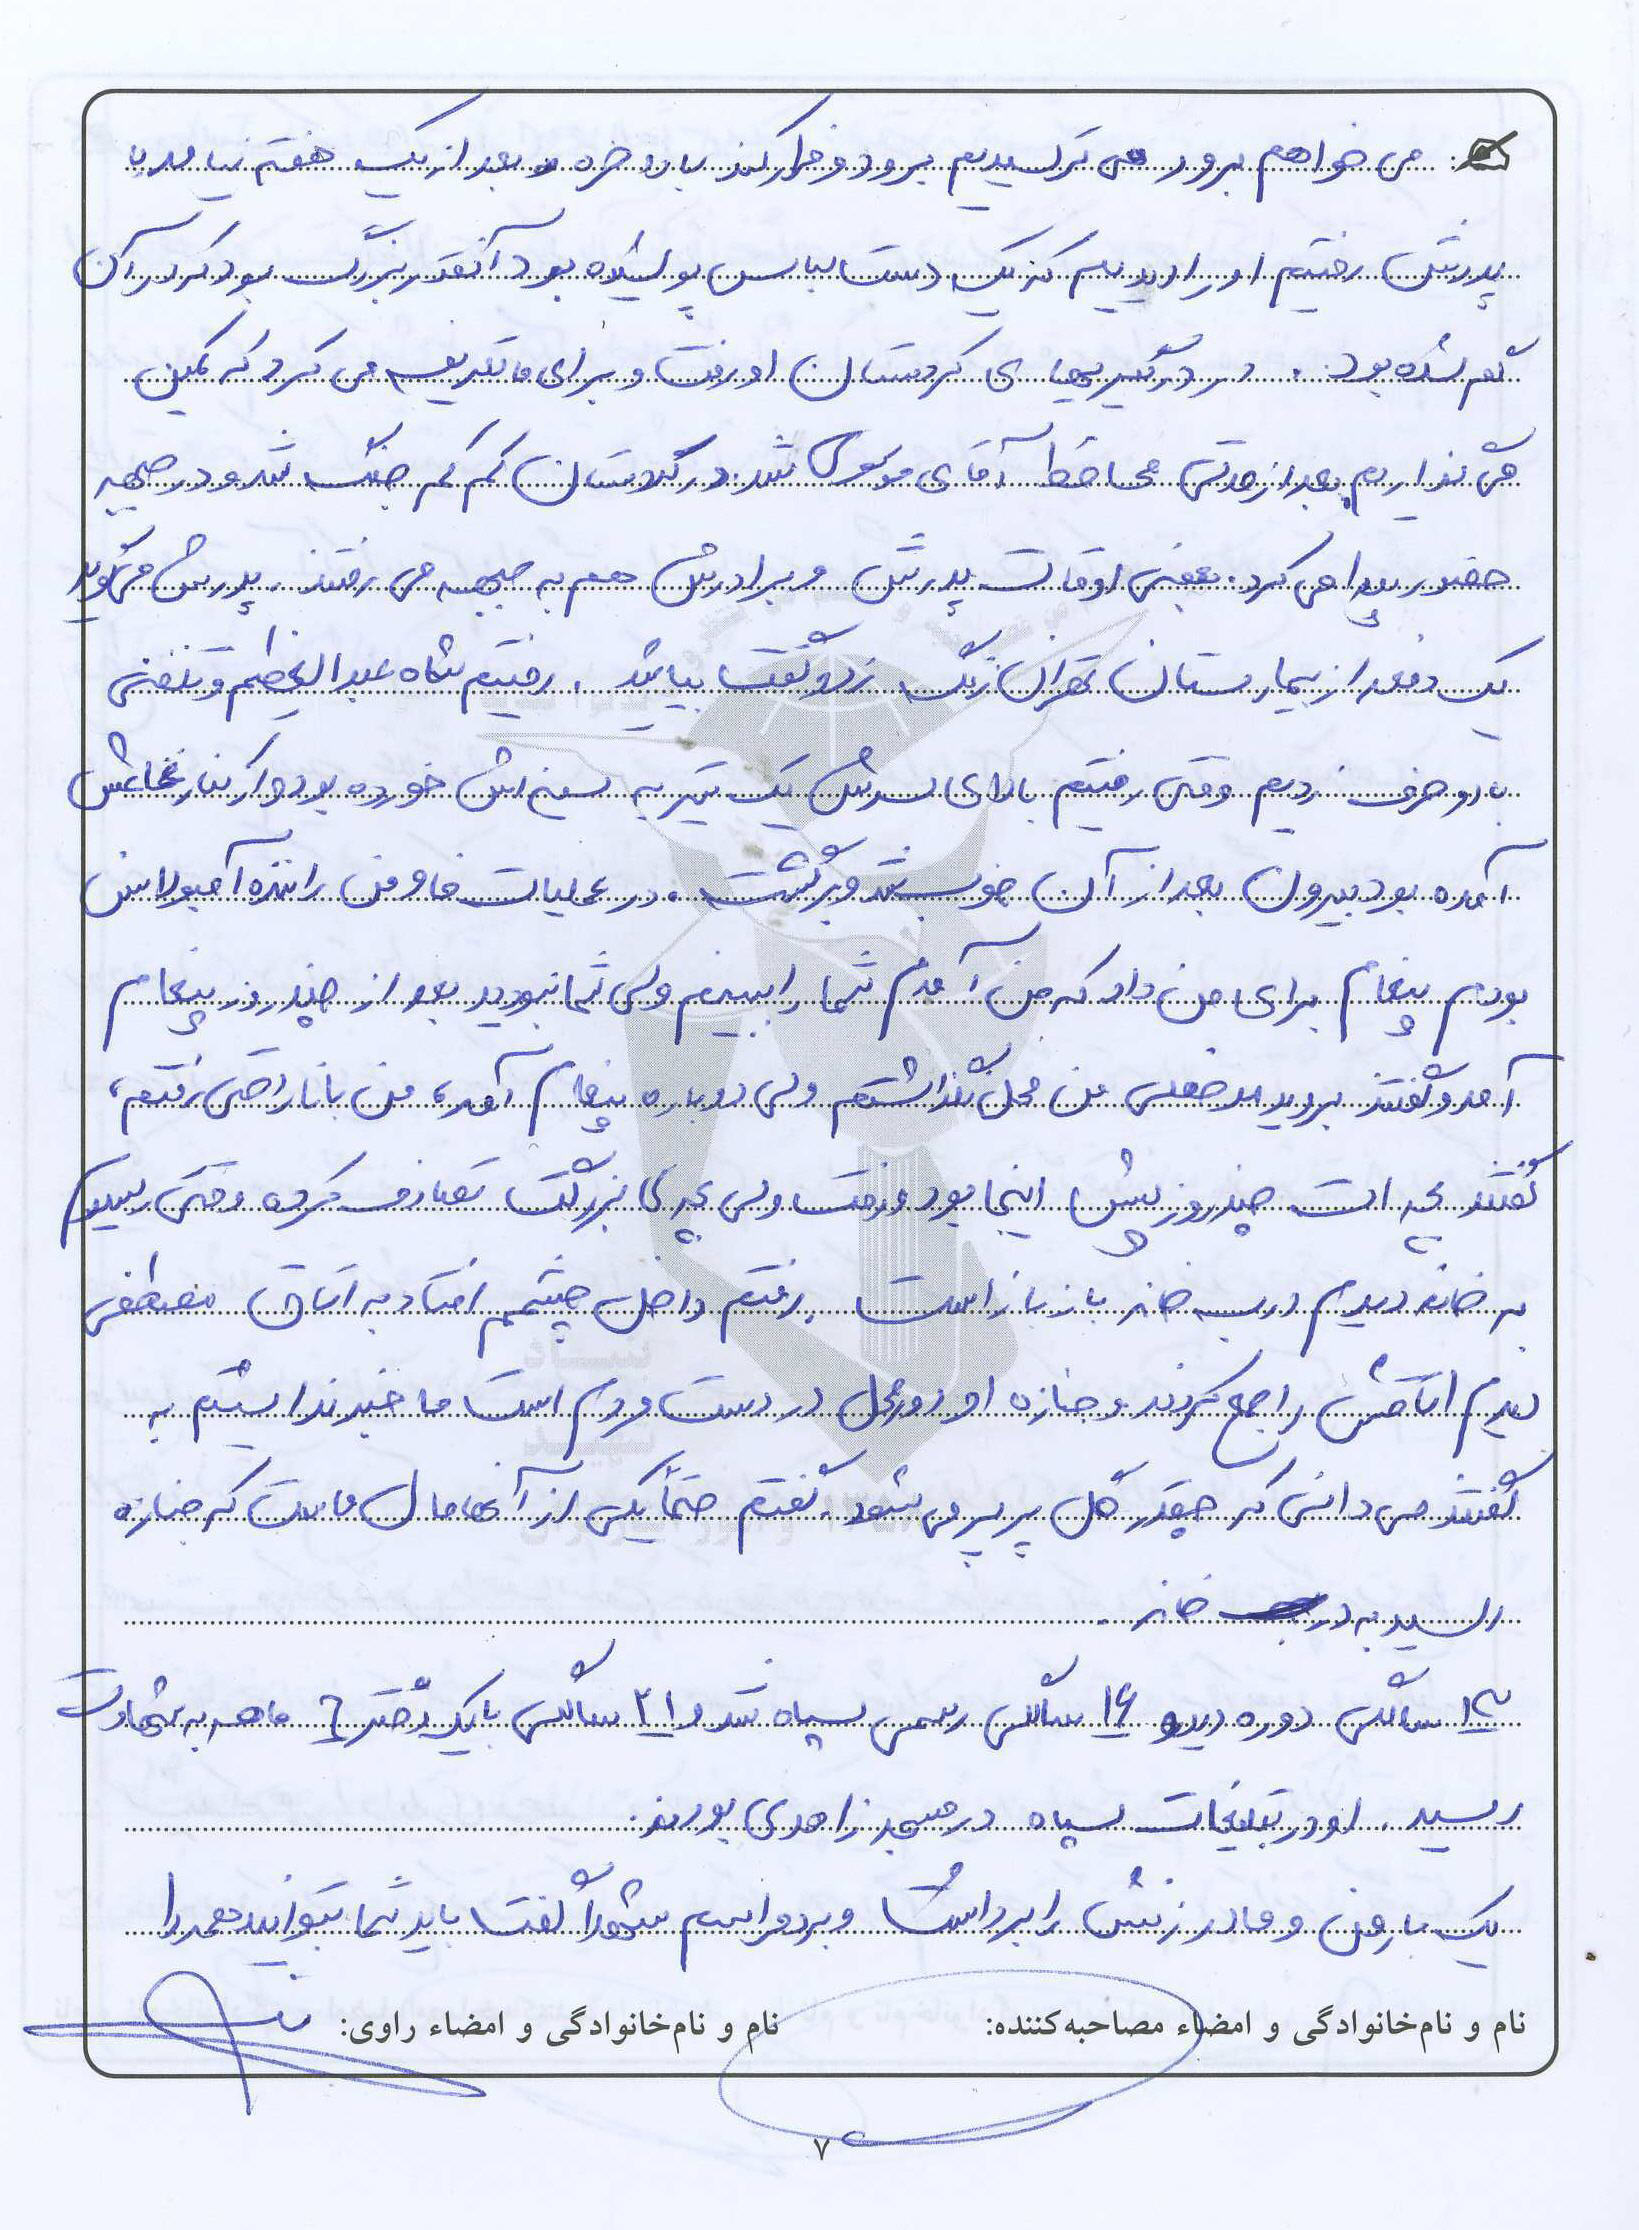 می خواهم برود می ترسیدیم برود و فرار کند بالاخره و بعد از یک هفته نیامد با
پدرش رفتیم او را دیدیم که یک دست لباس پوشیده بود آنقدر بزرگ بود که در آن
گم شده بود. در درگیریهای کردستان او رفت و برای ما تعریف می کرد که کمین
می گذاریم بعد از مدتی محافظ آقای موسوی شد. در کردستان کم کم جنگ شد و در جبهه
حضور پیدا می کرد. بعضی اوقات پدرش و برادرش هم به جبهه می رفتند. پدرش می گوید
یک دفعه از بیمارستان تهران زنگ زد و گفت بیائید. رفتیم شاه عبدالعظیم و تلفنی
با او حرف زدیم وقتی رفتیم بالای سرش یک تیر به سینه اش خورده بود و از کنار نخاعش
آمده بود بیرون بعد از آن خوب شد و برگشت. در عملیات خاو من راننده آمبولانس
بودم پیغام برای من داد که من آمدم شما را ببینم ولی شما نبودید بعد از چند روز پیغام
آمد و گفتند بروید مرخصی من محل نگذاشتم ولی دوباره پیغام آمد، من با ناراحتی رفتم،
گفتند چه است چند روز پیش اینجا بود و رفت ولی بچه ی بزرگت تصادف کرده وقتی رسیدم
به خانه دیدم درب خانه باز باز است رفتم داخل چشمم افتاد به اتاق مصطفی
دیدم اتاقش را جمع کردند و جنازه او دور محل در دست مردم است ما خبر نداشتیم به
گفتند می دانی که چقدر گل پرپر می شود. گفتم حتماً یکی از آنها مال ماست که جنازه
رسید به در خانه.
۱۳ سالگی دوره دید و ۱۶ سالگی رسمی سپاه شد و ۲۱ سالگی با یک دختر ۶ ماهه به شهادت
رسید. او در تبلیغات سپاه در مسجد زاهدی بودند.
یک بار من و مادر زنش را برداشت و برد مراسم شهدا گفت باید شما بتوانید همه را
نام و نام‌خانوادگی و امضاء مصاحبه‌کننده: نام و نام‌خانوادگی و امضاء راوی:
۷